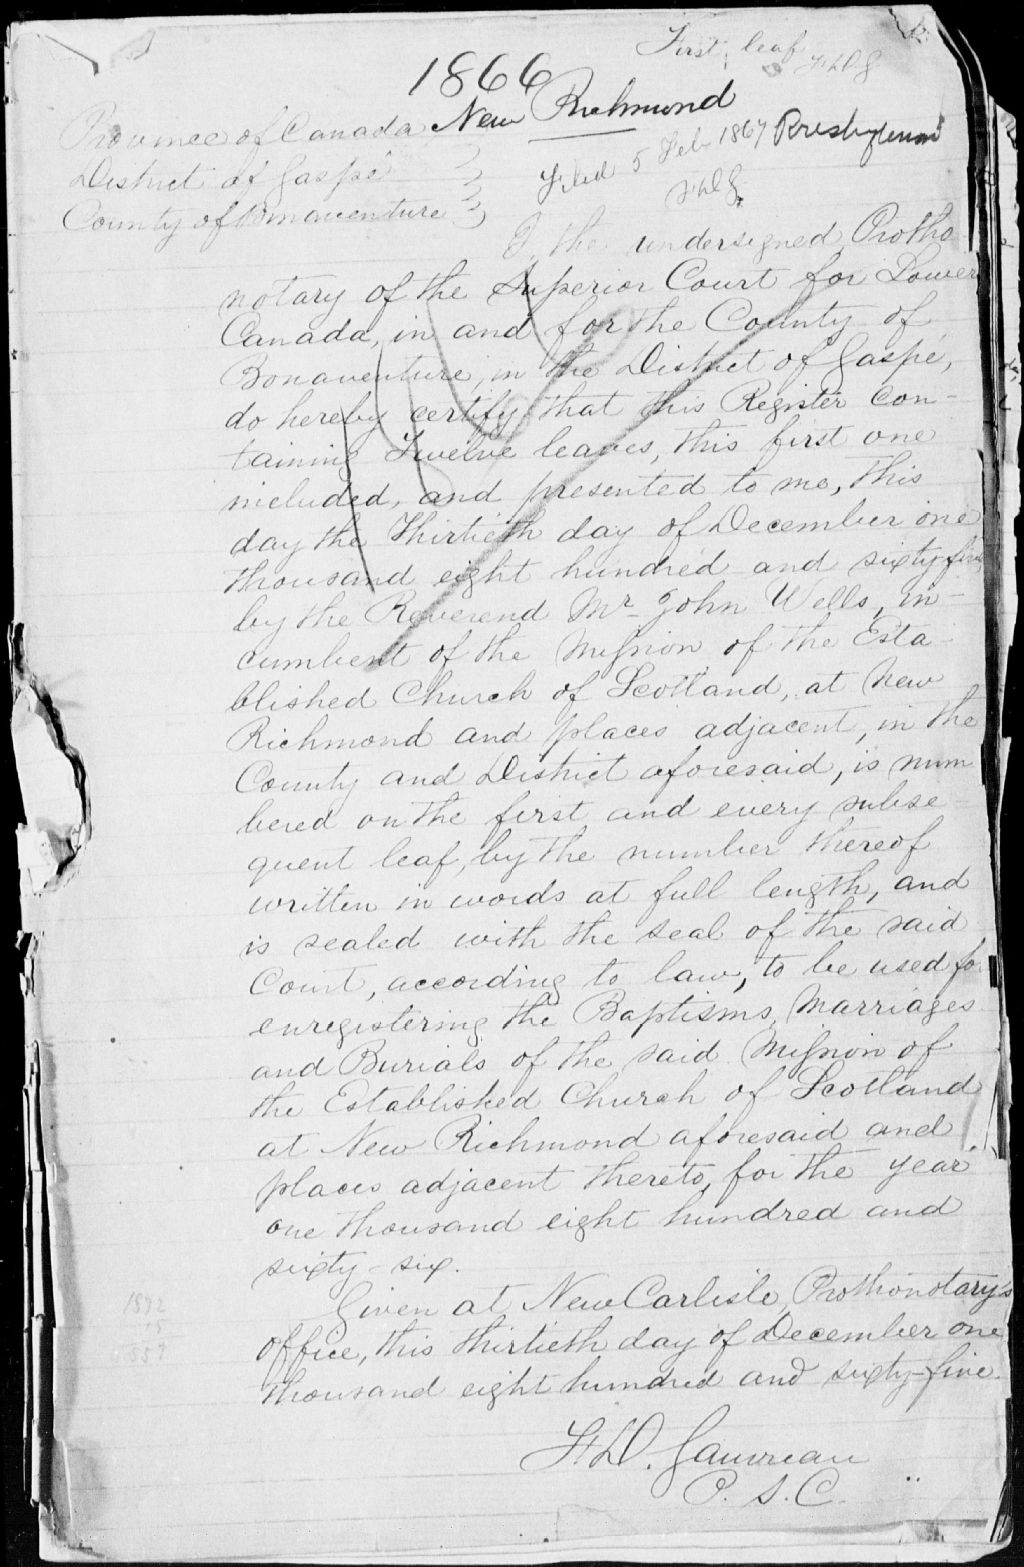 First leaf
FLDG
1866
New Richmond
Presbyterian
Province of Canada
District of Gaspé
County of Bonaventure
Filed 5 Feb 1867
FLDG.
I, the undersigned, Protho
notary of the Superior Court for Lower
Canada, in and for the County of
Bonaventure, in the District of Gaspé,
do hereby certify that this Register con-
taining Twelve leaves, this first one
included, and presented to me, this
day the Thirtieth day of December one
thousand eight hundred and sixty five
by the Reverend Mr John Wells, in-
cumbent of the Mission of the Esta-
blished Church of Scotland, at New
Richmond and places adjacent, in the
County and District aforesaid, is num
bered on the first and every subse-
quent leaf, by the number thereof
written in words at full length, and
is sealed with the seal of the said
Court, according to law, to be used for
enregistering the Baptisms, Marriages
and Burials of the said Mission of
the Established Church of Scotland
at New Richmond aforesaid and
places adjacent thereto, for the year
one thousand eight hundred and
sixty-six.
Given at New Carlisle, Prothonotary's
office, this thirtieth day of December one
thousand eight hundred and sixty-five.
1872
15
F.L.D. Gauvreau
P. S. C.